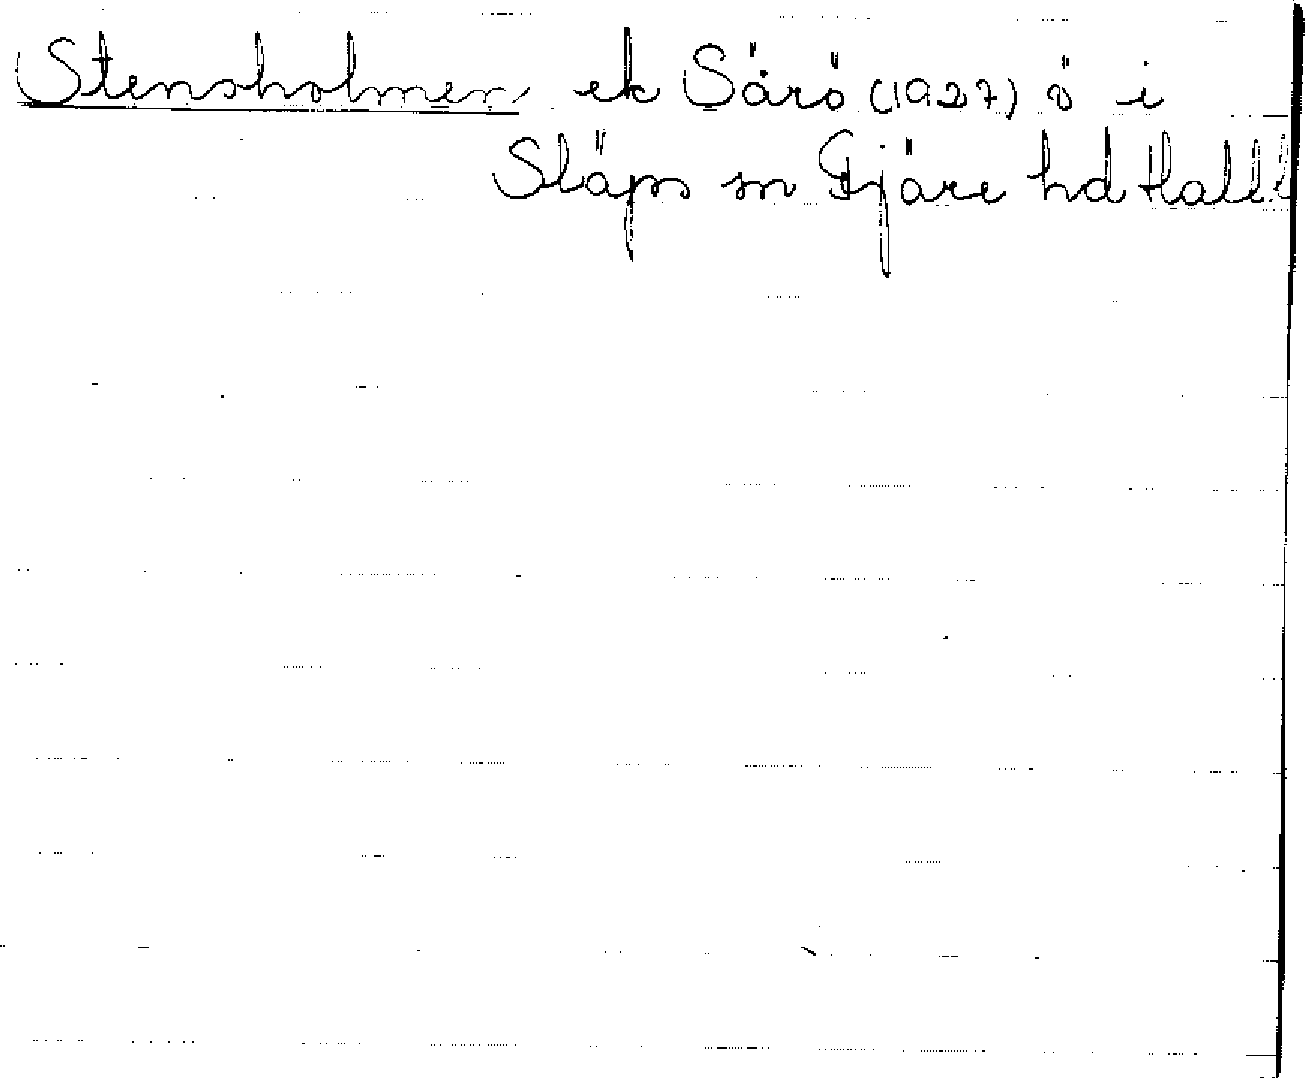 Stensholmen ek Särö (1927) ö i
Släps sn Fjäre hd Hall.